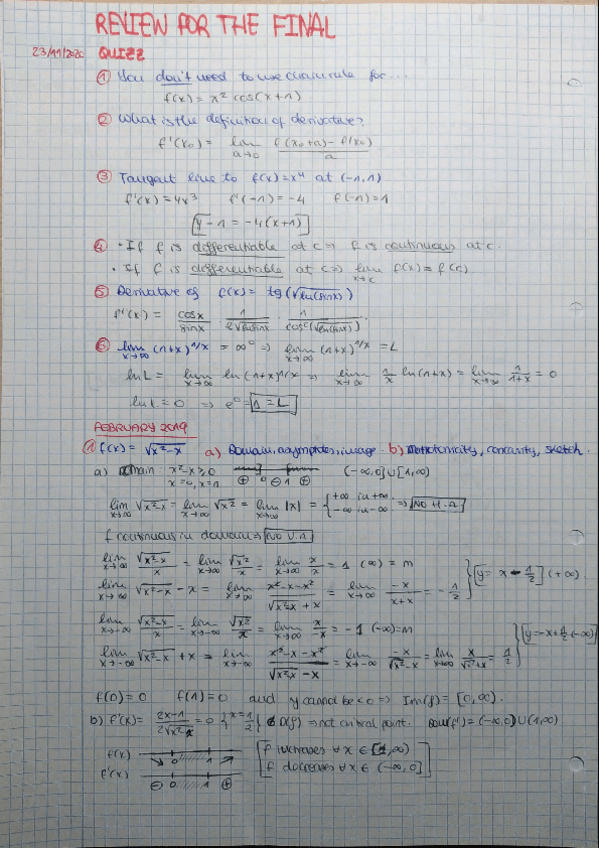 REVIEW FOR THE FINAL
23/11/2020 QUIZZ
① You don't need to use chain rule for...
f(x) = x² cos(x+1)
② What is the definition of derivative?
f'(x₀) = lim a→0 f(x₀+a) - f(x₀) / a
③ Tangent line to f(x)=x⁴ at (-1,1)
f'(x) = 4x³ f'(-1) = -4 f(-1) = 1
y - 1 = -4(x+1)
④ · If f is differentiable at c ⇒ f is continuous at c.
· If f is differentiable at c ⇒ lim x→c f(x) = f(c)
⑤ Derivative of f(x) = tg(√ln(sinx))
f'(x) = cosx/sinx · 1/2√ln(sinx) · 1/cos²(√ln(sinx))
⑥ lim x→∞ (1+x)^1/x = ∞⁰ ⇒ lim x→∞ (1+x)^1/x = L
ln L = lim x→∞ ln(1+x)^1/x ⇒ lim x→∞ 1/x ln(1+x) = lim x→∞ 1/1+x = 0
ln L = 0 ⇒ e⁰ = 1 = L
FEBRUARY 2019
① f(x) = √x²-x a) Domain, asymptotes, image. b) Monotonicity, concavity, sketch.
a) Domain: x²-x ≥ 0 ⊕ 0 ⊖ 1 ⊕ (-∞,0] ∪ [1,∞)
x=0, x=1
lim x→∞ √x²-x = lim x→∞ √x² = lim x→∞ |x| = { +∞ in +∞ -∞ in -∞ ⇒ NO H.A
f continuous in domain ⇒ NO V.A
lim x→∞ √x²-x / x = lim x→∞ √x² / x = lim x→∞ x/x = 1 (∞) = m
lim x→∞ √x²-x - x = lim x→∞ x²-x-x² / √x²-x + x = lim x→∞ -x / x+x = -1/2 } y = x - 1/2 (+∞)
lim x→-∞ √x²-x / x = lim x→-∞ √x² / x = lim x→-∞ x/-x = -1 (-∞) = m
lim x→-∞ √x²-x + x = lim x→-∞ x²-x-x² / √x²-x - x = lim x→-∞ -x / √x²-x = lim x→∞ x / √x²+x = 1/2 } y = -x + 1/2 (-∞)
f(0) = 0 f(1) = 0 and y cannot be < 0 ⇒ Im(f) = [0,∞).
b) f'(x) = 2x-1 / 2√x²-x = 0 { x = 1/2 } ∉ D(f) ⇒ not critical point. Dom(f') = (-∞,0) ∪ (1,∞)
f(x) 0 1 f increases ∀ x ∈ [1,∞)
f'(x) ⊖ 0 1 ⊕ f decreases ∀ x ∈ (-∞,0]